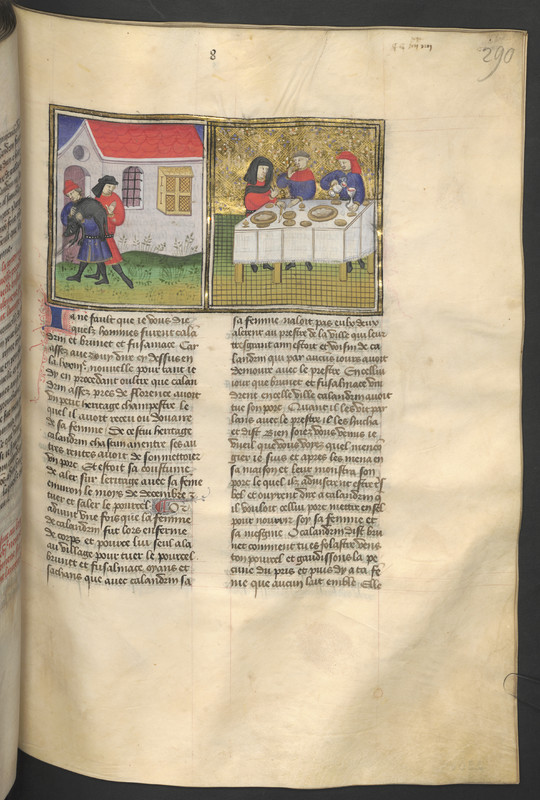 8
290
Ja ne fault que ie vous die
quelz hommes furent cala
drin et brunet et fusaniace Car
assez auez ouy dire cy dessus en
la nouuelle pour tant ie
dy en procedant oultre que calan
drin assez pres de florence auoit
vn petit heritage champestre le
quel il auoit receu ou douaire
de sa femme De cestui heritage
calandrin chascun an entre ses au
tres rentes auoit de son mettoier
vn porc Et estoit sa coustume
de aler sur leritage auec sa feme
enuiron le moys de decembre
tuer et saler le pourcel Or
aduint vne fois que la femme
de calandrin fut lors enferme
de corps et pource lui seul ala
au village pour tuer le pourcel
brunet et fusaniace oyans et
sachans que auec calandrin sa
sa femme naloit pas eulx deux
alerent au prestre de la ville qui leur
tresgrant amy estoit et voisin de ca
landrin qui par aucuns iours auoit
demoure auec le prestre En cellui
iour que brunet et fusaniace vin
drent en celle ville calandrin auoit
tue son porc Quant il les vit par
lans auec le prestre il les hucha
et dist Bien soiez vous venus ie
vueil que vous voyez quel mena
gier ie suis et apres les mena en
sa maison et leur monstra son
porc le quel ilz
bel et ouyrent dire a calandrin q
il vouloit cellui porc mettre en sel
pour nourrir soy sa femme et
sa mesgnie O calandrin dist bru
net comment tu es folastre vens
ton pourcel et gaudissons la pe
cune du pris et puis dy a ta fe
me que aucun lait emble Elle